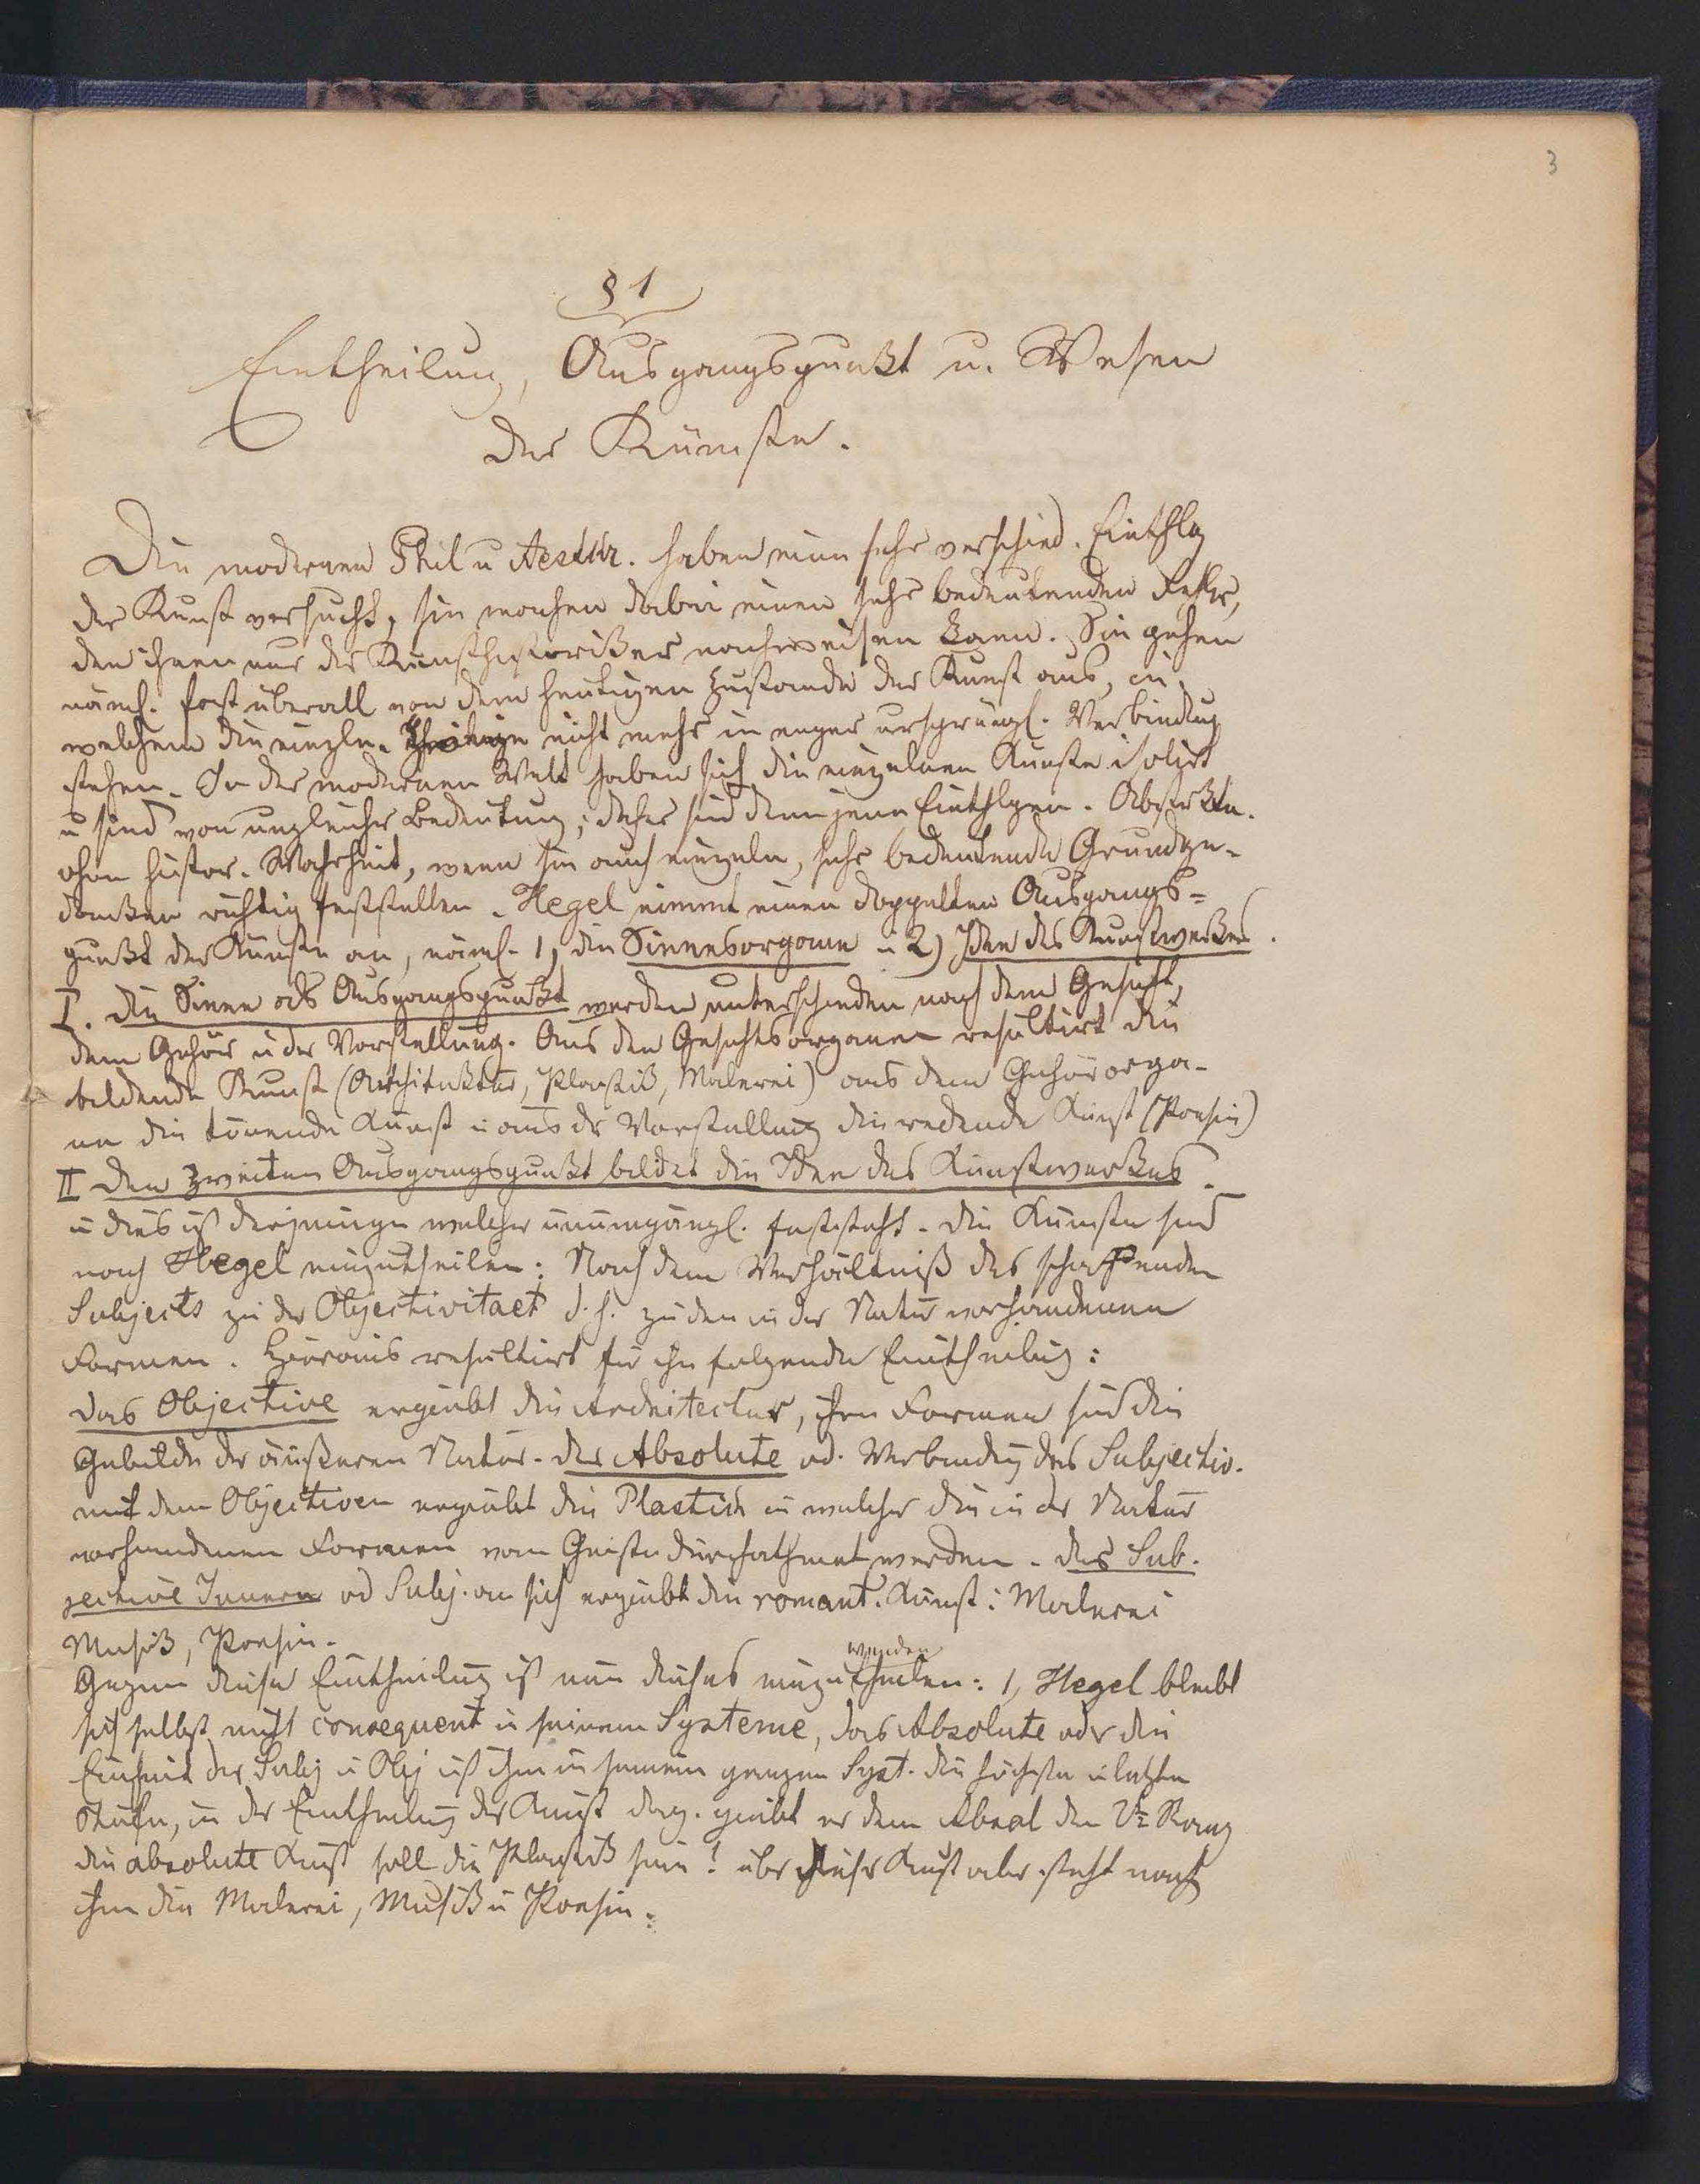 3
§ 1
Eintheilung, Ausgangspunkt u. Wesen
der Künste.
Die modernen Phil u Aesthr. haben nun sehr verschied. Einthlg
der Kunst versucht, sie machen dabei einen sehr bedeutenden Fehler,
den ihnen nur der Kunsthistoriker nachweisen kann. Sie gehen
näml. fast überall von dem heutigen Zustande der Kunst aus, in
welchem die einzeln. nicht mehr in enger ursprüngl. Verbindung
stehen. In der modernen Welt haben sich die einzelnen Künste isolirt
u sind von ungleicher Bedeutung; daher sind denn jene Einthlgen.
ohne histor. Wahrheit, wenn sie auch einzeln, sehr bedeutende Grundge-
danken richtig feststellen. Hegel nimmt einen doppelten Ausgangs-
punkt der Künste an, näml. 1, die Sinnesorgane u 2) Idee des Kunstwerkes.
I. Die Sinne als Ausgangspunkt werden unterschieden nach dem Gesicht,
dem Gehör u der Vorstellung. Aus den Gesichtsorganen resultirt die
bildende Kunst (Architektur, Plastik, Malerei) aus dem Gehörorga-
ne die tönende Kunst u aus der Vorstellung die redende Kunst (Poesie)
II Den zweiten Ausgangspunkt bildet die Idee des Kunstwerkes.
u dies ist derjenige welcher unumgängl. feststeht. Die Künste sind
nach Hegel einzutheilen: Nach dem Verhältniß des schaffenden
Subjects zu der Objectivitaet d. h. zu den in der Natur vorhandenen
Formen. Hieraus resultirt für ihn folgende Eintheilung:
Das Objective ergiebt die Architectur, ihre Formen sind die
Gebilde der äußeren Natur. Das Absolute od. Verbindung des Subjectiv.
mit dem Objectiven ergiebt die Plastick in welcher die in der Natur
vorhandenen Formen vom Geiste durchathmet werden. Das Sub-
jective Innere od Subj. an sich ergiebt die romant. Kunst: Malerei
Musik, Poesie.
Gegen diese Eintheilung ist nun dieses einzuwenden: 1, Hegel bleibt
sich selbst nicht consequent in seinem Systeme, das Absolute oder die
Einheit der Subj u Obj ist ihm in seinem ganzen Syst. die höchste u letzte
Stufe, in der Eintheilung der Kunst dag. giebt er dem Absol den Rang
die absolute Kunst soll die Plastik sein! über dieser Kunst aber steht nach
ihm die Malerei, Musik u Poesie.